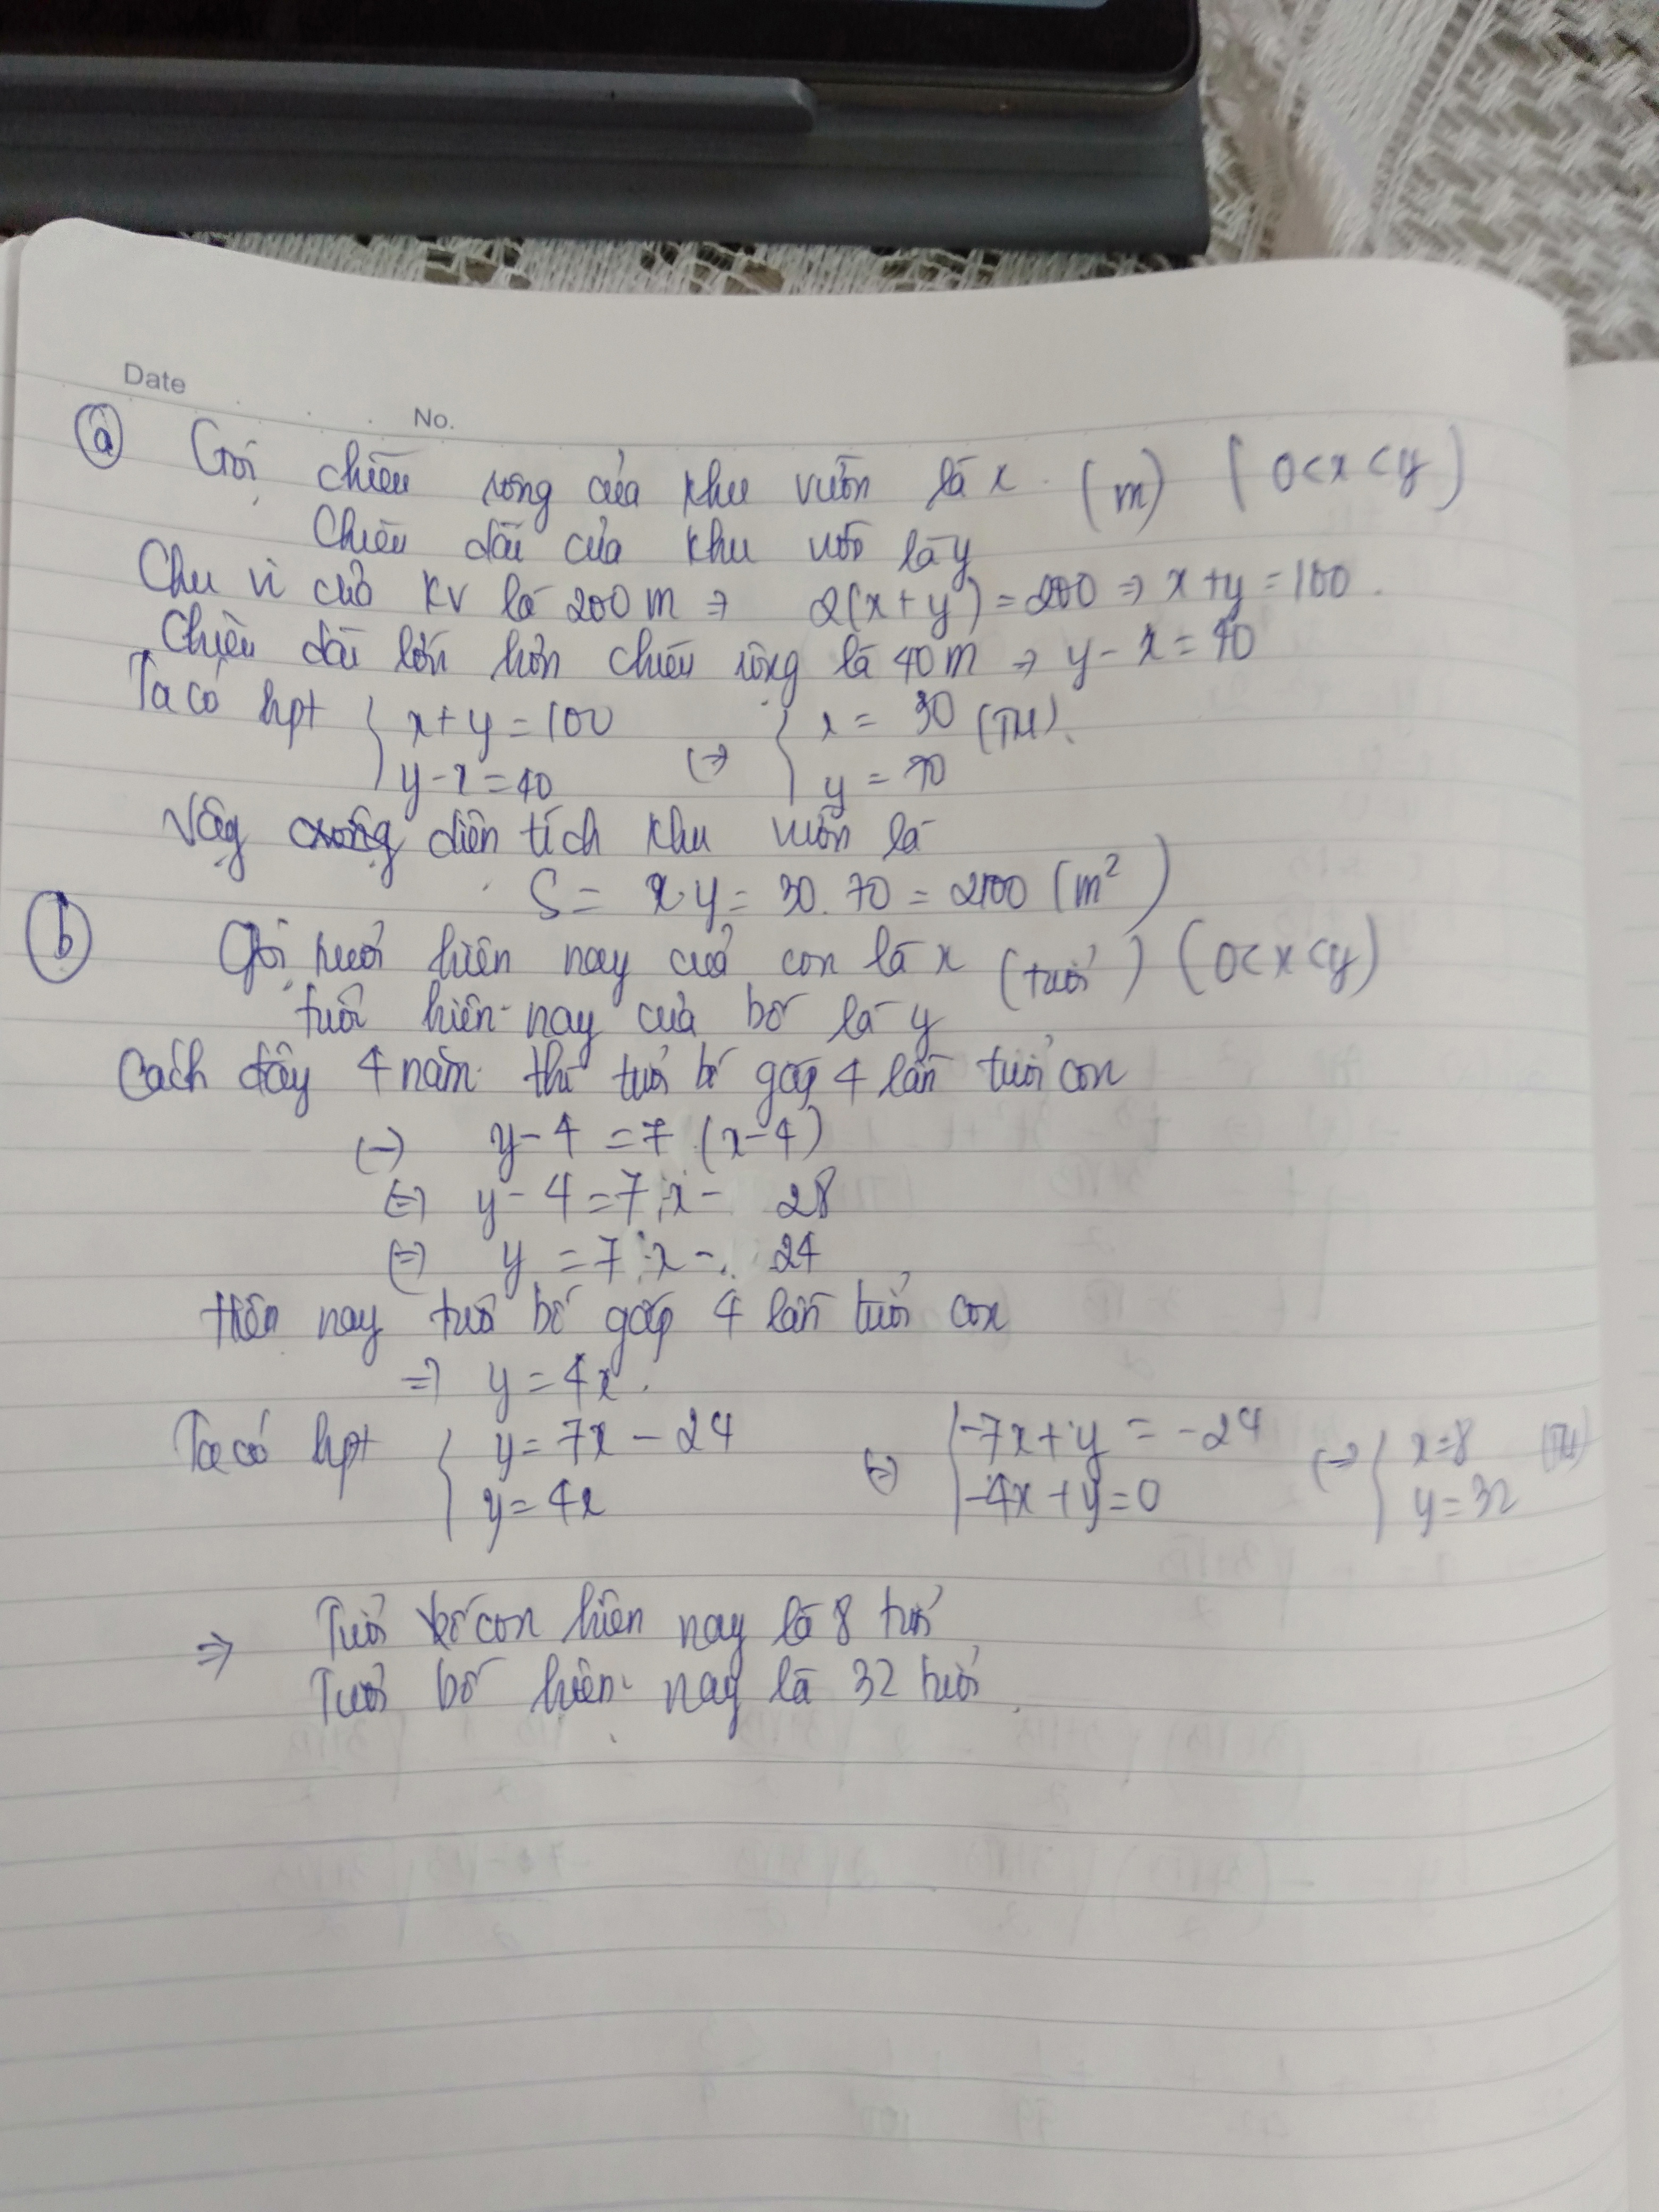 Date
No.
a Gọi chiều rộng của khu vườn là x (m) (0<x<y)
Chiều dài của khu vườn là y
Chu vi của KV là 200m => 2(x+y)=200 => x+y=100.
Chiều dài lớn hơn chiều rộng là 40m => y-x=40
Ta có hpt { x+y=100 <=> { x= 30 (TM)
y-x=40 y = 70
Vậy diện tích khu vườn là
S= x.y= 30.70= 2100 (m²)
b Gọi tuổi hiện nay của con là x (tuổi) (0<x<y)
tuổi hiện nay của bố là y
Cách đây 4 năm thì tuổi bố gấp 4 lần tuổi con
<=> y-4 =7 (x-4)
<=> y-4 =7x- 28
<=> y =7x- 24
Hiện nay tuổi bố gấp 4 lần tuổi con
=> y=4x.
Ta có hpt { y=7x-24 <=> { -7x+y = -24 <=> { x=8 (TM)
y=4x -4x+y=0 y=32
=> Tuổi con hiện nay là 8 tuổi
Tuổi bố hiện nay là 32 tuổi.